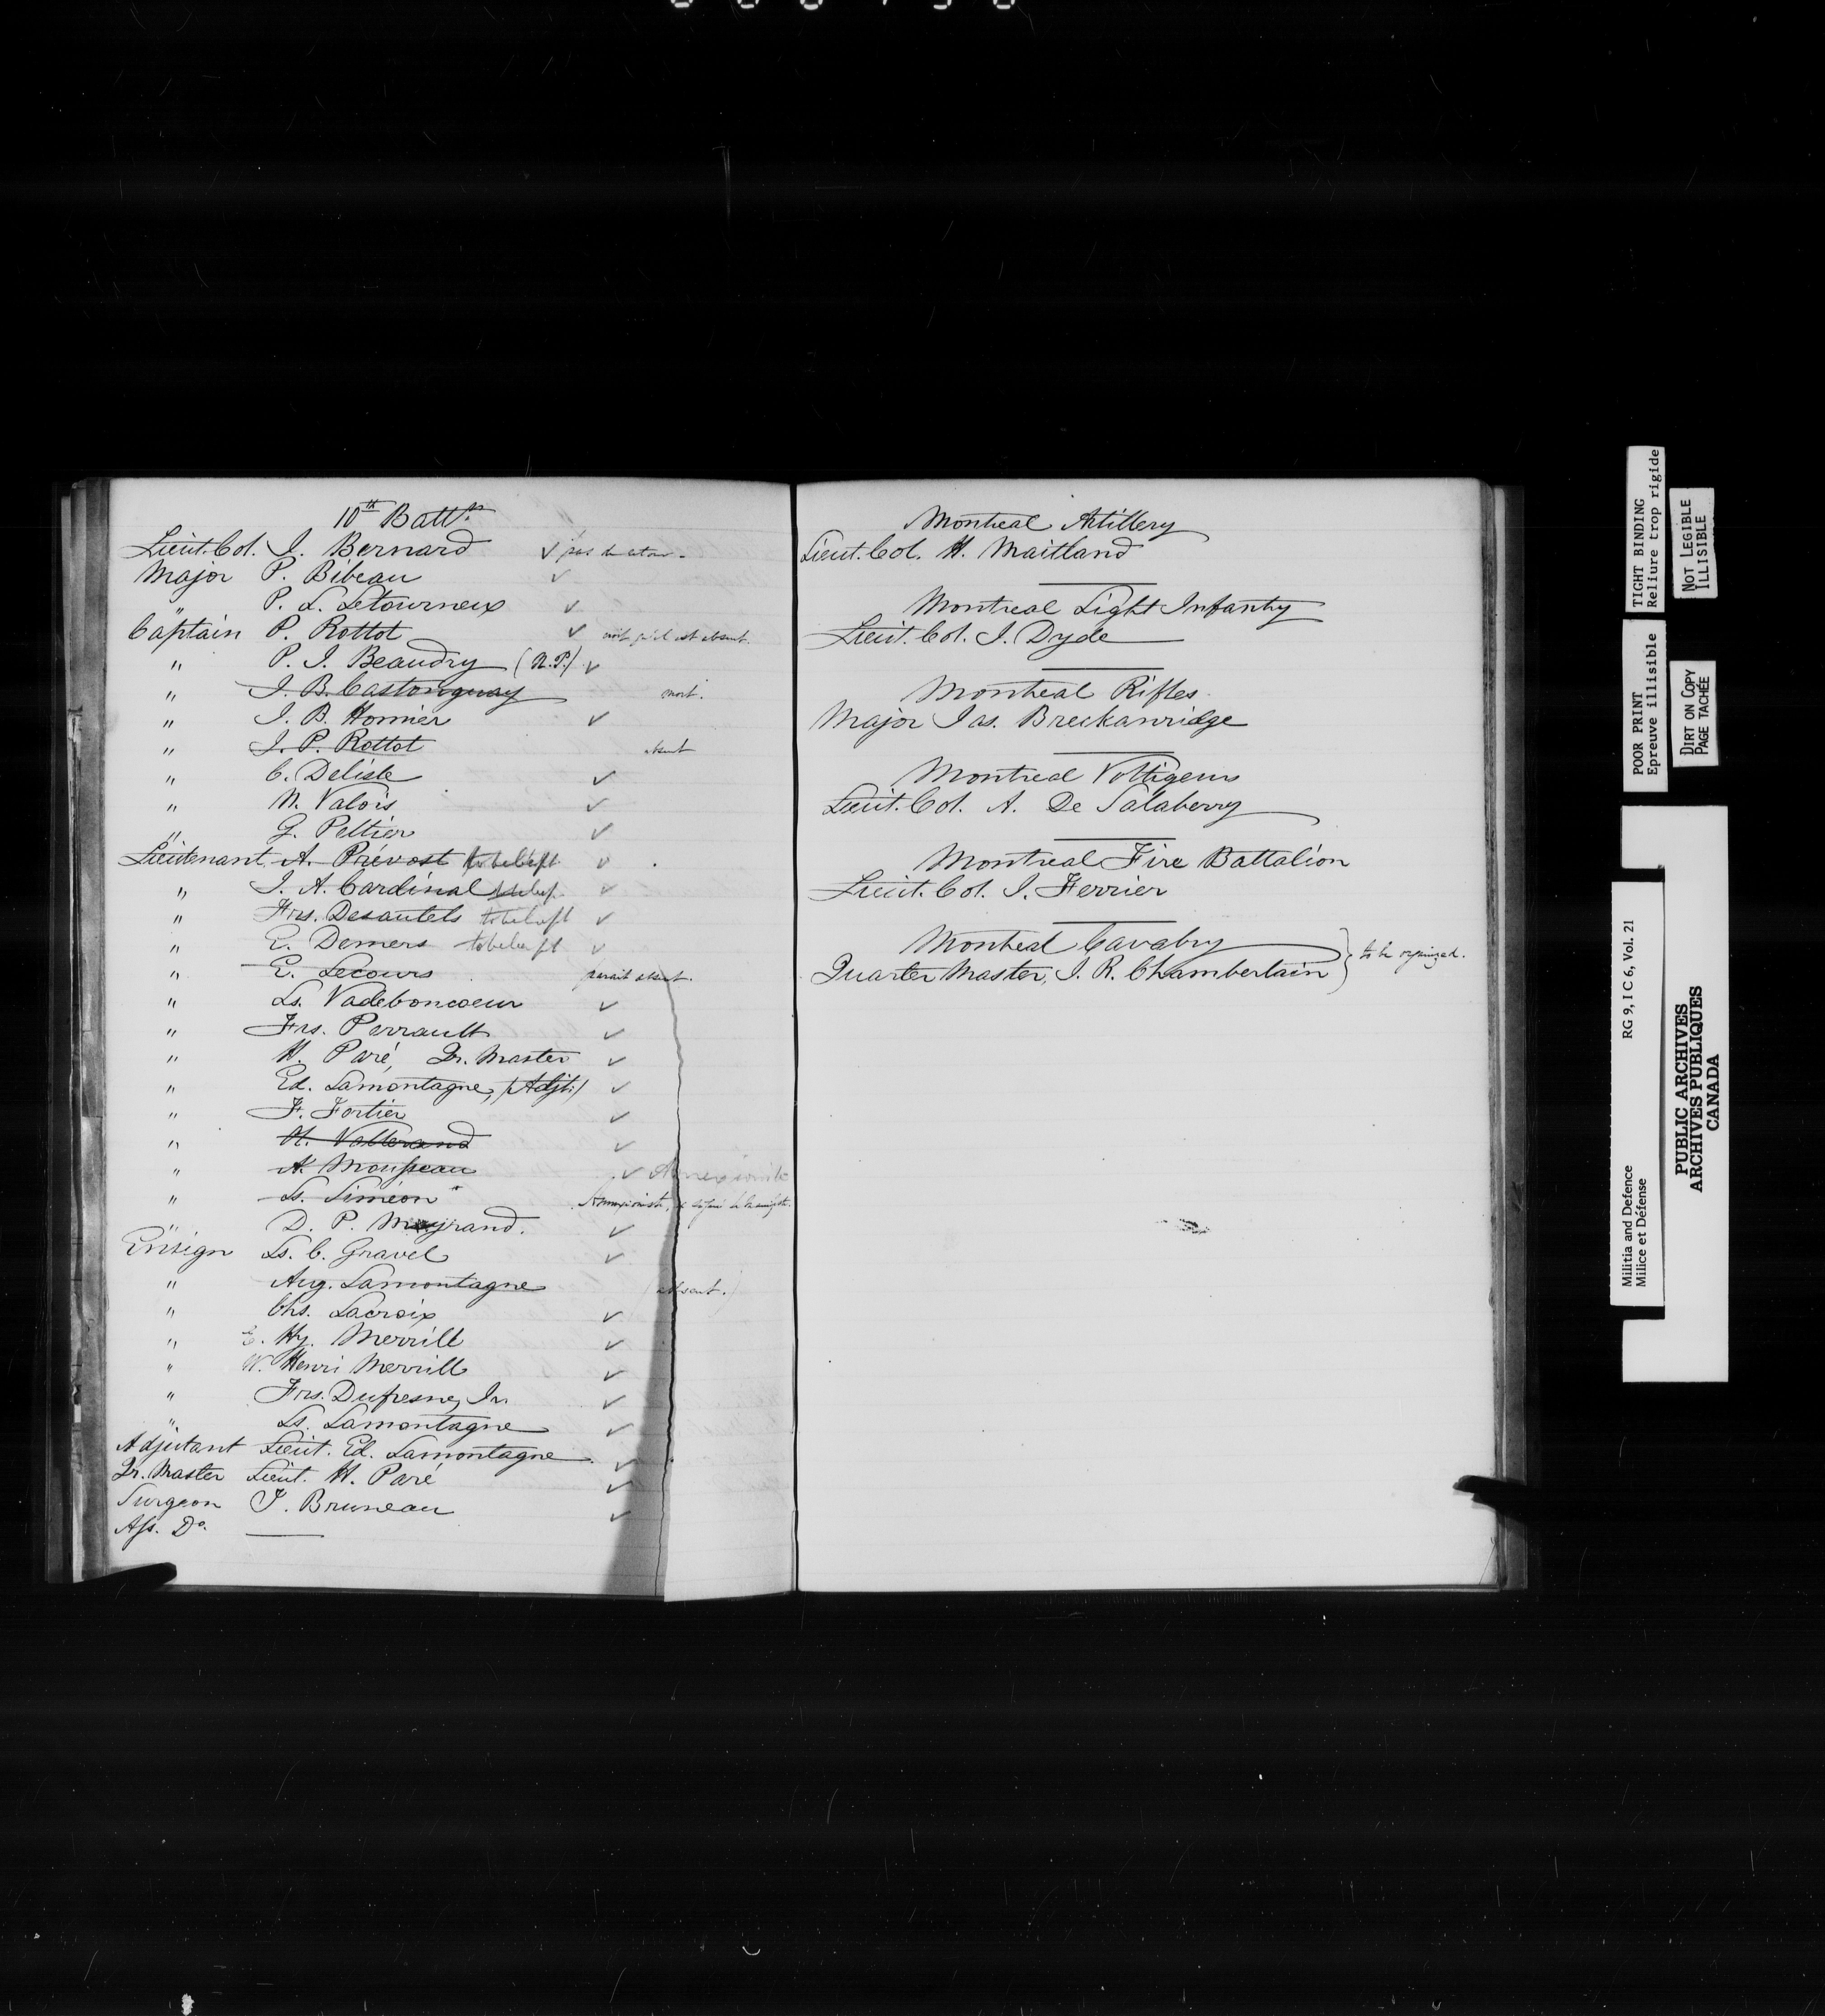 10th Battn
Lieut. Col. J. Bernard ✓ pas de
Major P. Bibeau ✓
" P. L. Letourneux ✓
Captain P. Rottot ✓ absent.
" P. J. Beaudry (N.P.) ✓
" J. B. Castonguay mort.
" J. B. Homier ✓
" J. P. Rottot absent
" C. Delisle ✓
" N. Valois ✓
" G. Peltier ✓
Lieutenant A. Prévost to be left ✓
" J. A. Cardinal ✓
" Frs. Desautels to be left ✓
" E. Demers to be left ✓
" E. Lecours parait absent.
" Ls. Vadeboncoeur ✓
" Frs. Perrault ✓
" H. Paré, Qr. Master ✓
" Ed. Lamontagne, (Adjt.) ✓
" F. Fortier ✓
" H. Vallerand ✓
" A. Mousseau ✓ Annexioniste
" Ls. Siméon Annexioniste,
" D. P. Mayrand. ✓
Ensign Ls. C. Gravel ✓
" Aug. Lamontagne (absent.)
" Chs. Lacroix ✓
" E. Hy. Merrill ✓
" W. Henri Merrill ✓
" Frs. Dufresne, Jr. ✓
" Ls. Lamontagne ✓
Adjutant Lieut. Ed. Lamontagne ✓
Qr. Master Lieut. H. Paré ✓
Surgeon J. Bruneau ✓
Ass. Do.
Montreal Artillery
Lieut. Col. H. Maitland
Montreal Light Infantry
Lieut. Col. J. Dyde
Montreal Rifles.
Major Jas. Breckanridge
Montreal Voltigeurs
Lieut. Col. A. De Salaberry
Montreal Fire Battalion
Lieut. Col. J. Ferrier
Montreal Cavalry
Quarter Master, J. R. Chamberlain } to be organized.
TIGHT BINDING
Reliure trop rigide
NOT LEGIBLE
ILLISIBLE
POOR PRINT
Epreuve illisible
DIRT ON COPY
PAGE TACHÉE
Militia and Defence
Milice et Défense
RG 9, I C 6, Vol. 21
PUBLIC ARCHIVES
ARCHIVES PUBLIQUES
CANADA